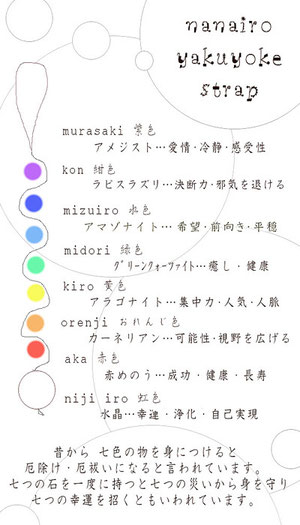 nanairo
yakuyoke
strap
murasaki 紫色
アメジスト…愛情・冷静・感受性
kon 紺色
ラピスラズリ…決断力・邪気を退ける
mizuiro 水色
アマゾナイト…希望・前向き・平穏
midori 緑色
グリーンクォーツァイト…癒し・健康
kiro 黄色
アラゴナイト…集中力・人気・人脈
orenji おれんじ色
カーネリアン…可能性・視野を広げる
aka 赤色
赤めのう…成功・健康・長寿
niji iro 虹色
水晶…幸運・浄化・自己実現
昔から 七色の物を身につけると
厄除け・厄祓いになると言われています。
七つの石を一度に持つと七つの災いから身を守り
七つの幸運を招くともいわれています。